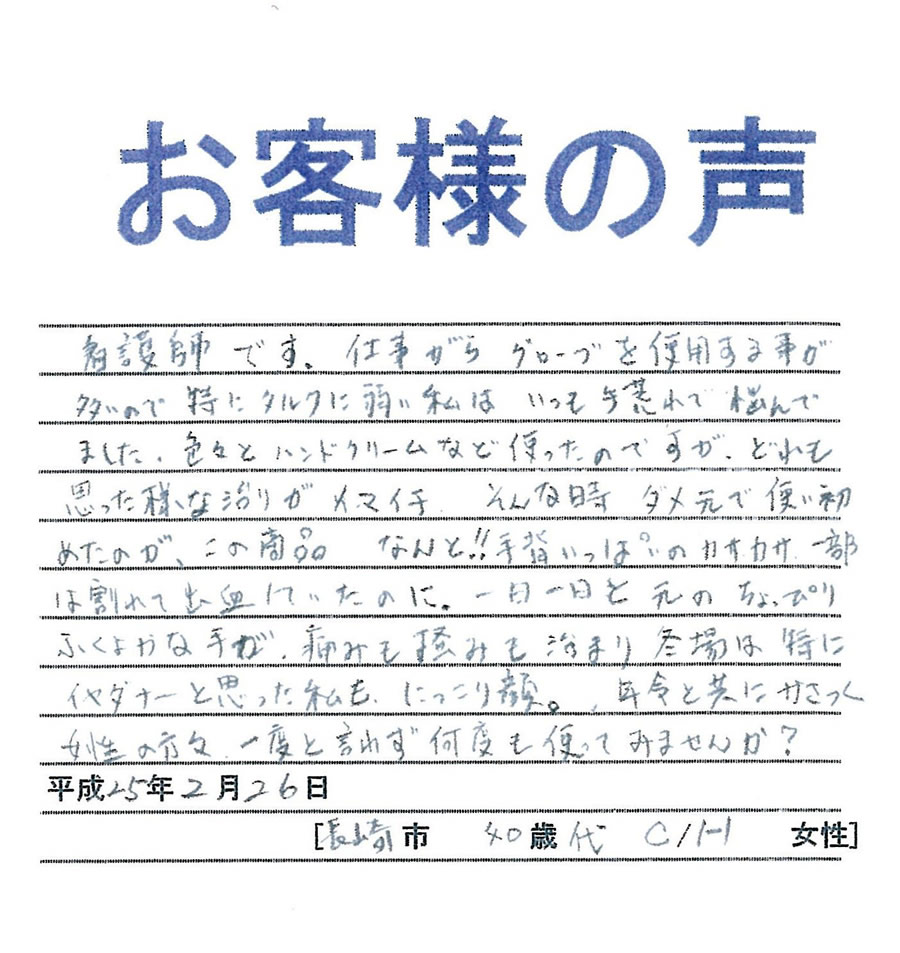 お客様の声
看護師です。仕事がら グローブを使用する事が
多いので 特にタルクに弱い私は いつも手荒れで悩んで
ました。色々とハンドクリームなど使ったのですが、どれも
思った様な治りがイマイチ そんな時 ダメ元で使い初
めたのが、この商品 なんと!!手背いっぱいのカサカサ 一部
は割れて出血していたのに。一日一日と元のちょっぴり
ふくよかな手が、痛みも痒みも治まり冬場は特に
イヤダナーと思った私も、にっこり顔。、年令と共にかさつく
女性の方々、一度と言わず何度も使ってみませんか?
平成25年2月26日
[長崎市 40歳代 C/H 女性]